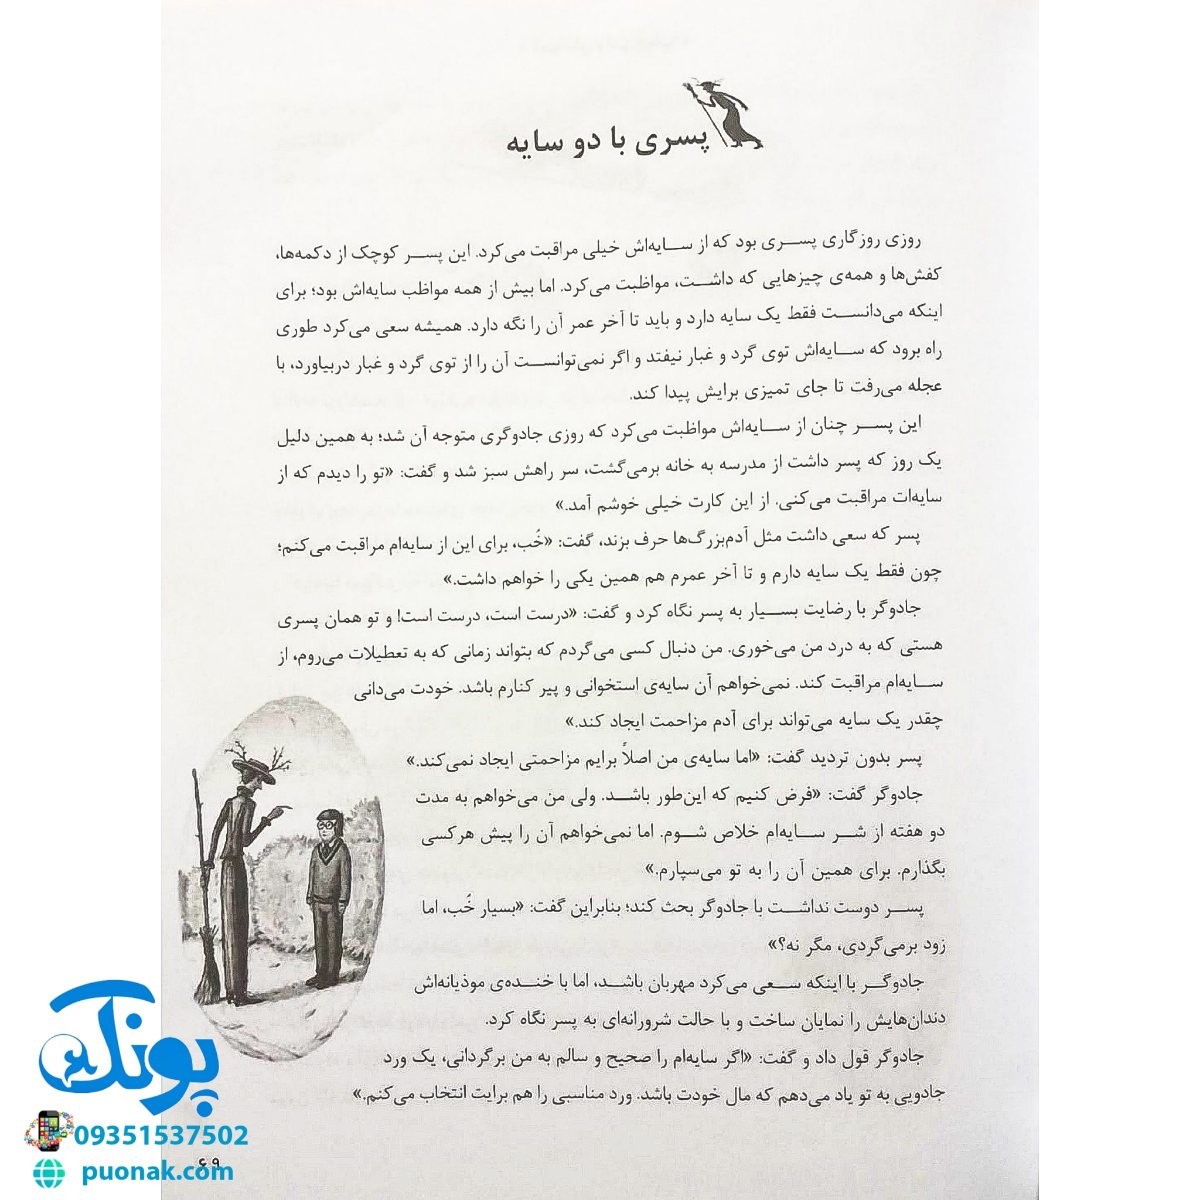 پسری با دو سایه
روزی روزگاری پسری بود که از سایه‌اش خیلی مراقبت می‌کرد. این پسر کوچک از دکمه‌ها،
کفش‌ها و همه‌ی چیزهایی که داشت، مواظبت می‌کرد. اما بیش از همه مواظب سایه‌اش بود؛ برای
اینکه می‌دانست فقط یک سایه دارد و باید تا آخر عمر آن را نگه دارد. همیشه سعی می‌کرد طوری
راه برود که سایه‌اش توی گرد و غبار نیفتد و اگر نمی‌توانست آن را از توی گرد و غبار دربیاورد، با
عجله می‌رفت تا جای تمیزی برایش پیدا کند.
این پسر چنان از سایه‌اش مواظبت می‌کرد که روزی جادوگری متوجه آن شد؛ به همین دلیل
یک روز که پسر داشت از مدرسه به خانه برمی‌گشت، سر راهش سبز شد و گفت: «تو را دیدم که از
سایه‌ات مراقبت می‌کنی. از این کارت خیلی خوشم آمد.»
پسر که سعی داشت مثل آدم‌بزرگ‌ها حرف بزند، گفت: «خُب، برای این از سایه‌ام مراقبت می‌کنم؛
چون فقط یک سایه دارم و تا آخر عمرم هم همین یکی را خواهم داشت.»
جادوگر با رضایت بسیار به پسر نگاه کرد و گفت: «درست است، درست است! و تو همان پسری
هستی که به درد من می‌خوری. من دنبال کسی می‌گردم که بتواند زمانی که به تعطیلات می‌روم، از
سایه‌ام مراقبت کند. نمی‌خواهم آن سایه‌ی استخوانی و پیر کنارم باشد. خودت می‌دانی
چقدر یک سایه می‌تواند برای آدم مزاحمت ایجاد کند.»
پسر بدون تردید گفت: «اما سایه‌ی من اصلاً برایم مزاحمتی ایجاد نمی‌کند.»
جادوگر گفت: «فرض کنیم که این‌طور باشد. ولی من می‌خواهم به مدت
دو هفته از شر سایه‌ام خلاص شوم. اما نمی‌خواهم آن را پیش هرکسی
بگذارم. برای همین آن را به تو می‌سپارم.»
پسر دوست نداشت با جادوگر بحث کند؛ بنابراین گفت: «بسیار خُب، اما
زود برمی‌گردی، مگر نه؟»
جادوگر با اینکه سعی می‌کرد مهربان باشد، اما با خنده‌ی موذیانه‌اش
دندان‌هایش را نمایان ساخت و با حالت شرورانه‌ای به پسر نگاه کرد.
جادوگر قول داد و گفت: «اگر سایه‌ام را صحیح و سالم به من برگردانی، یک ورد
جادویی به تو یاد می‌دهم که مال خودت باشد. ورد مناسبی را هم برایت انتخاب می‌کنم.»
پونک
09351537502
puonak.com
۶۹